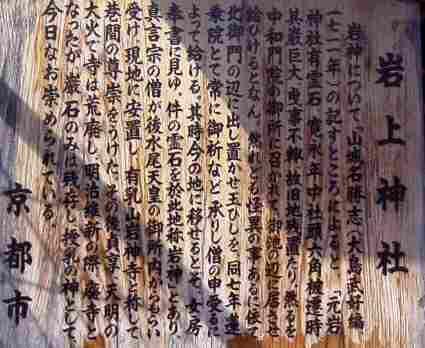 岩上神社
岩神について、「山城名勝志」(大島武好編
一七一一年)の記すところによると、「元岩
神社有霊石 寛永年中 社頭六角被遷時
其巌巨大、曳事不輙故旧地残置
中和門院の御所に召され、御池の辺に居させ
給ひけるとなん、然れども怪異の事あるに依て
北御門の辺に出し置かせ玉ひしを、同七年 蓮
乗院とて常に御所など承りし僧の申受るに
よって給ける、其時今の地に移せるとぞ、女房
奉書に見ゆ、件の霊石を於此地称岩神」とあり、
真言宗の僧が後水尾天皇の御所内からもらい
受け、現地に安置し、有乳山岩神寺と称して
巷間の尊崇をうけた。その後貞享・天明の
大火で寺は荒廃し、明治維新の際、廃寺と
なったが、巌石のみは残存し、授乳の神として
今日なお崇められている。
京都市